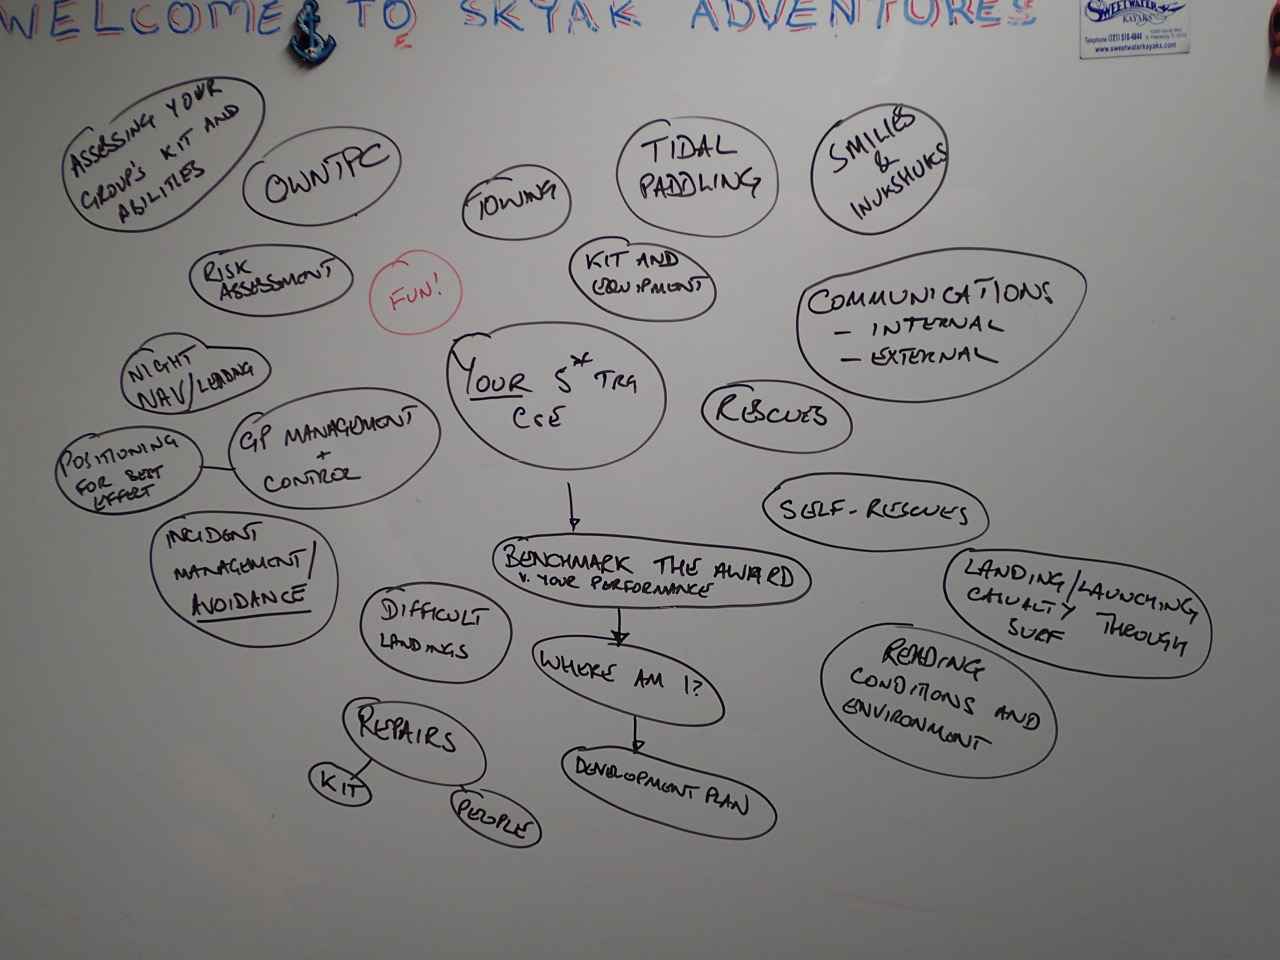 WELCOME TO SKYAK ADVENTURES
SWEETWATER
KAYAKS
www.sweetwaterkayaks.com
ASSESSING YOUR
GROUP'S KIT AND
ABILITIES
OWNTPC
TOWING
TIDAL
PADDLING
SMILIES
&
INUKSHUKS
RISK
ASSESSMENT
FUN!
KIT AND
EQUIPMENT
COMMUNICATIONS
- INTERNAL
- EXTERNAL
NIGHT
NAV/LEADING
YOUR 5* TRG
CSE
RESCUES
GP MANAGEMENT
+
CONTROL
POSITIONING
FOR BEST
EFFERT
SELF-RESCUES
INCIDENT
MANAGEMENT/
AVOIDANCE
BENCHMARK THE AWARD
V. YOUR PERFORMANCE
LANDING/LAUNCHING
CASUALTY THROUGH
SURF
DIFFICULT
LANDINGS
WHERE AM I?
READING
CONDITIONS AND
ENVIRONMENT
REPAIRS
KIT
PEOPLE
DEVELOPMENT PLAN